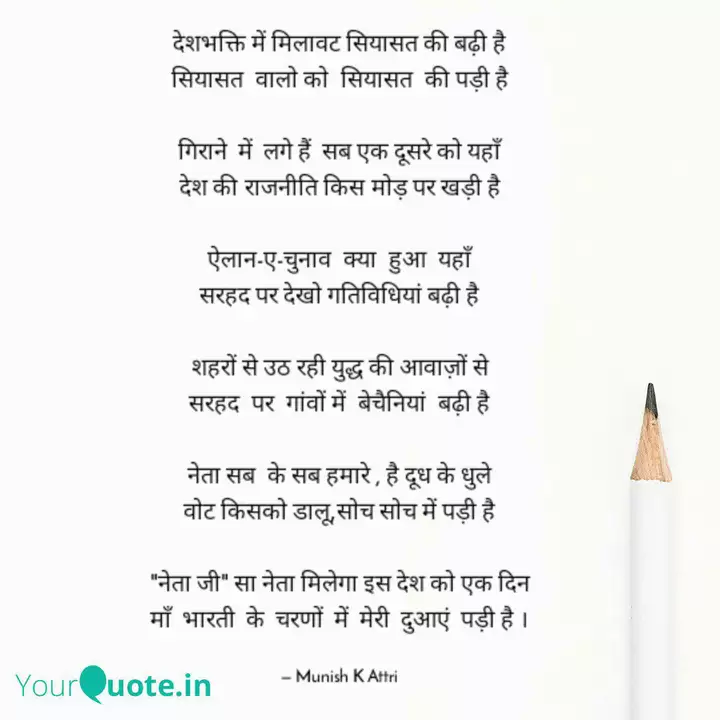 देशभक्ति में मिलावट सियासत की बढ़ी है
सियासत वालो को सियासत की पड़ी है
गिराने में लगे हैं सब एक दूसरे को यहाँ
देश की राजनीति किस मोड़ पर खड़ी है
ऐलान-ए-चुनाव क्या हुआ यहाँ
सरहद पर देखो गतिविधियां बढ़ी है
शहरों से उठ रही युद्ध की आवाज़ों से
सरहद पर गांवों में बेचैनियां बढ़ी है
नेता सब के सब हमारे , है दूध के धुले
वोट किसको डालू,सोच सोच में पड़ी है
"नेता जी" सा नेता मिलेगा इस देश को एक दिन
माँ भारती के चरणों में मेरी दुआएं पड़ी है ।
– Munish K Attri
YourQuote.in